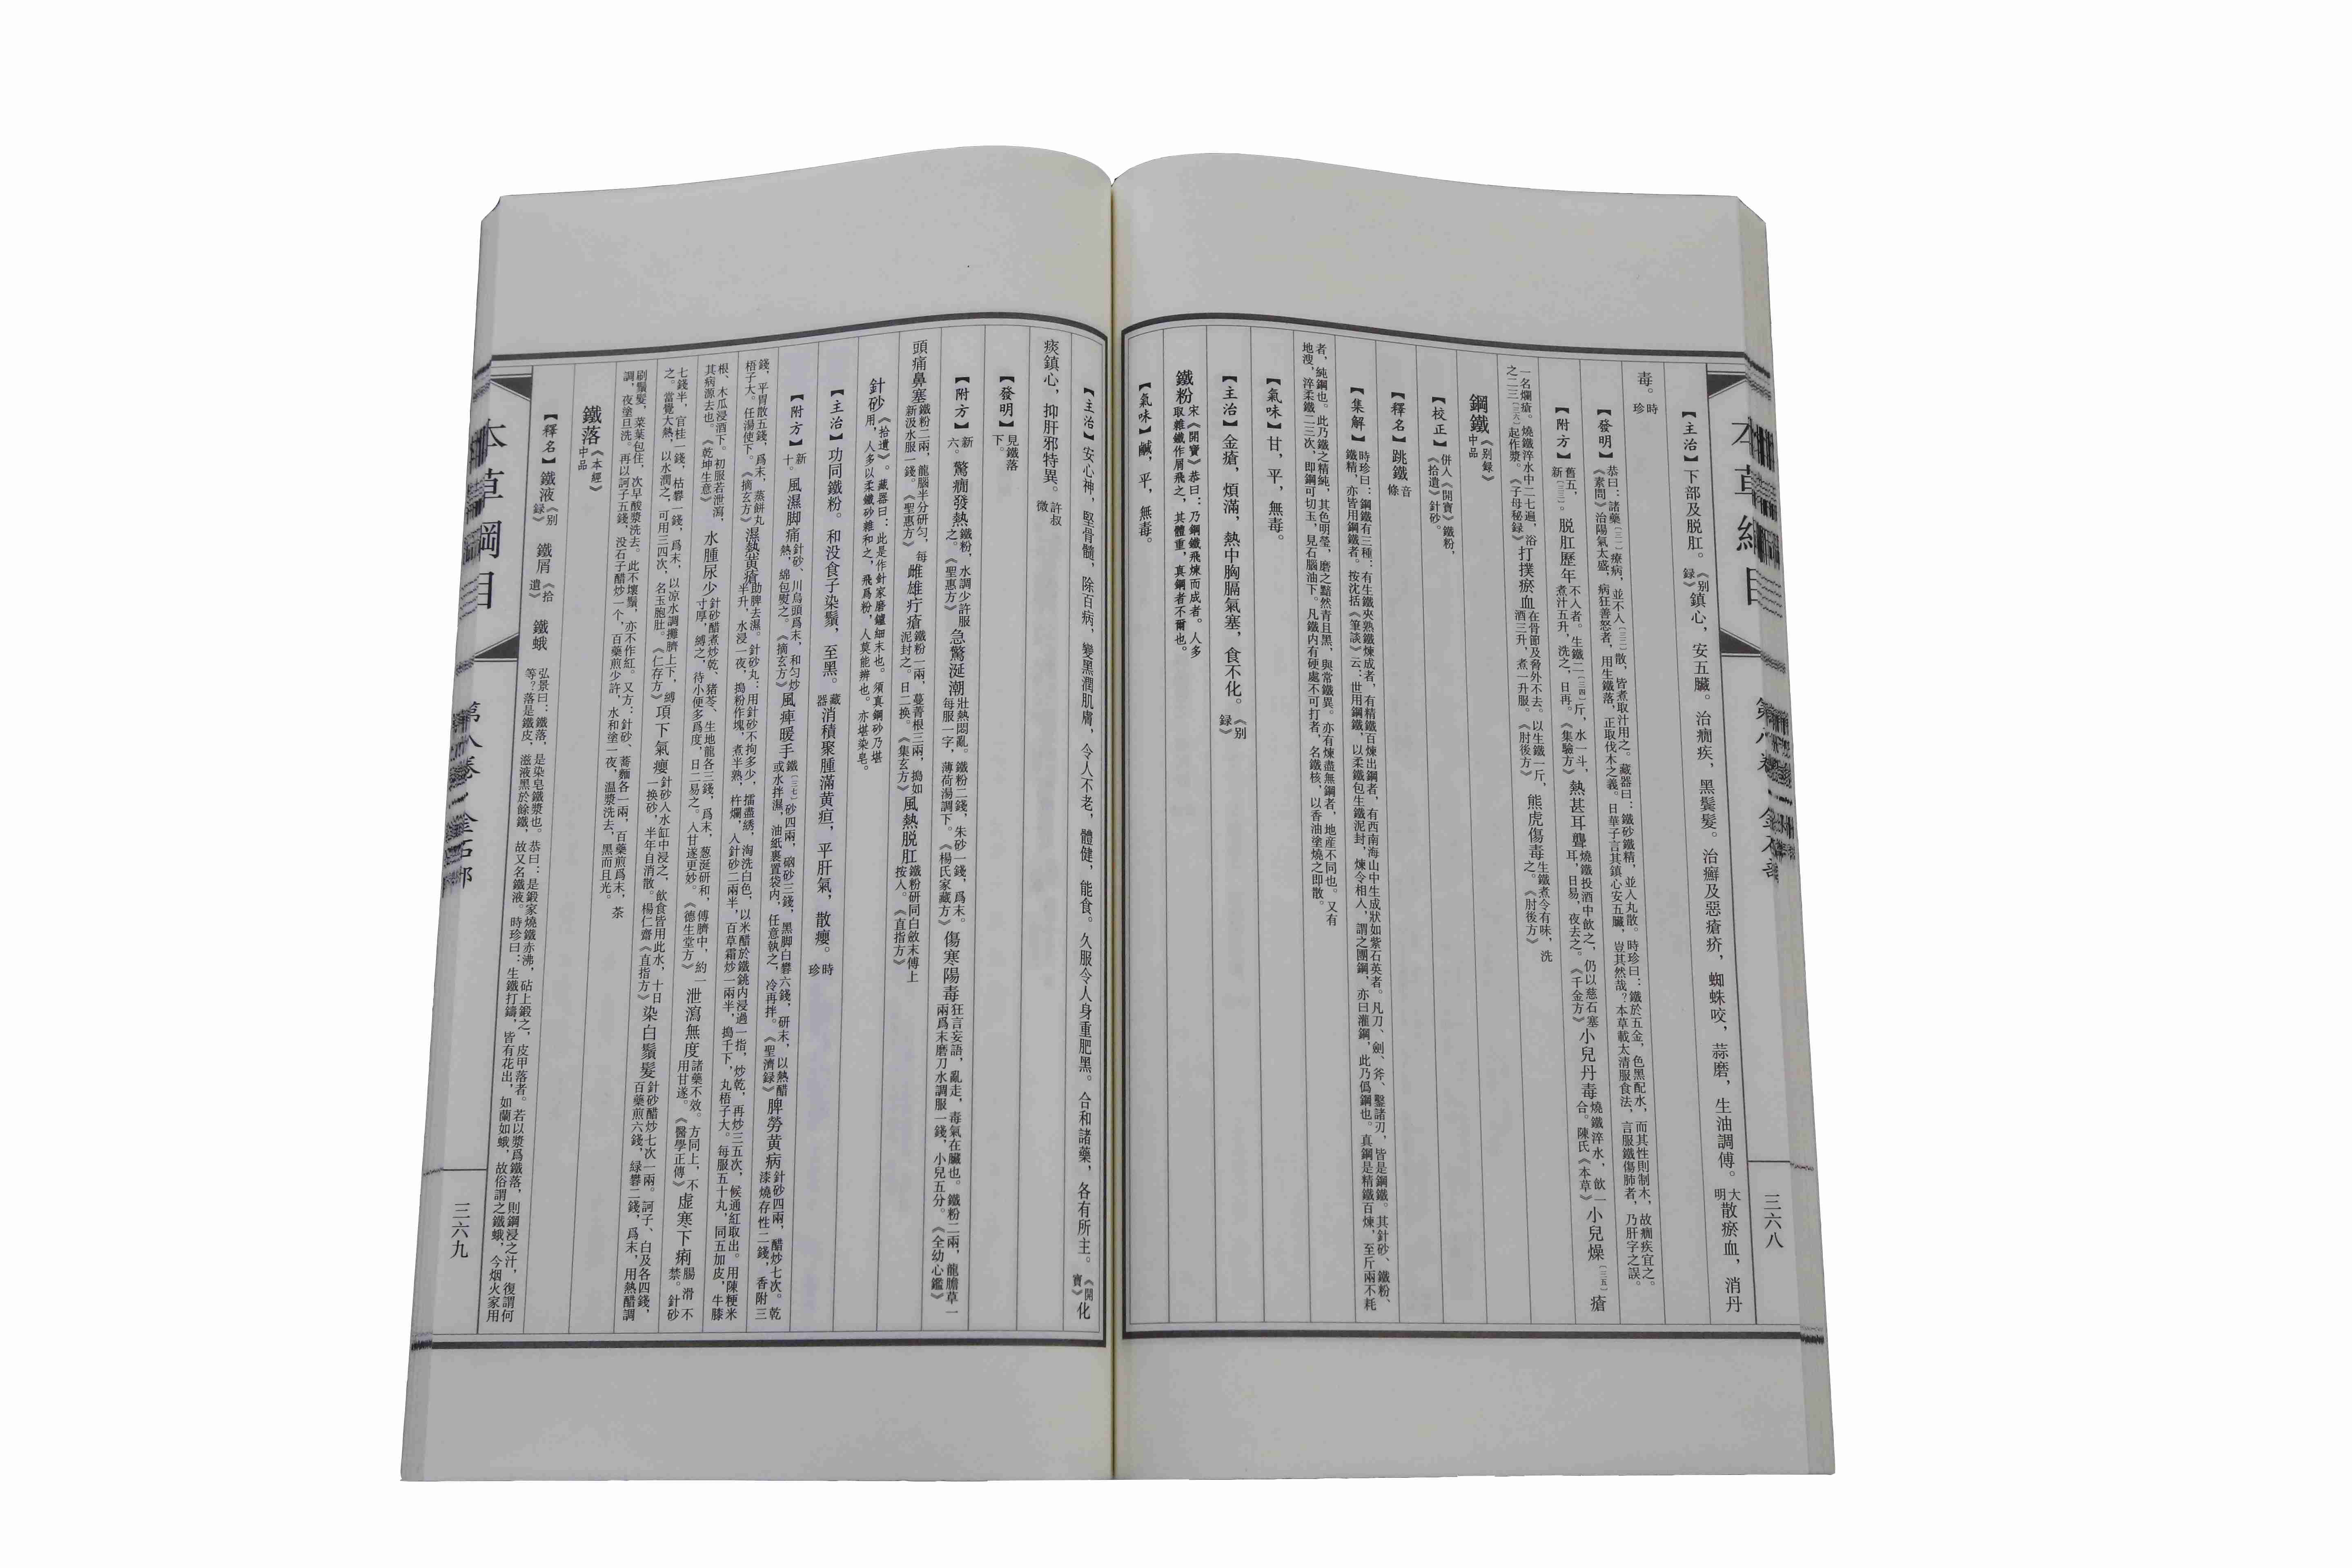 本草綱目 第八卷 金石部 三六八
【主治】下部及脱肛。《别録》鎮心，安五臟。治癇疾，黑鬢髮。治癬及惡瘡疥，蜘蛛咬，蒜磨，生油調傅。大明散瘀血，消丹
毒。時珍
【發明】恭曰：諸藥〔三一〕療病，並不入〔三二〕散，皆煮取汁用之。藏器曰：鐵砂鐵精，並入丸散。時珍曰：鐵於五金，色黑配水，而其性則制木，故癇疾宜之。
《素問》治陽氣太盛，病狂善怒者，用生鐵落，正取伐木之義。日華子言其鎮心安五臟，豈其然哉？本草載太清服食法，言服鐵傷肺者，乃肝字之誤。
【附方】舊五，新〔三三〕。脱肛歷年不入者。生鐵二〔三四〕斤，水一斗，煮汁五升，洗之，日再。《集驗方》熱甚耳聾燒鐵投酒中飲之，仍以慈石塞耳，日易，夜去之。《千金方》小兒丹毒燒鐵淬水，飲一合。陳氏《本草》小兒燥〔三五〕瘡
一名爛瘡。燒鐵淬水中二七遍，浴之二三〔三六〕起作漿。《子母秘録》打撲瘀血在骨節及脅外不去。以生鐵一斤，酒三升，煮一升服。《肘後方》熊虎傷毒生鐵煮令有味，洗之。《肘後方》
鋼鐵《别録》中品
【校正】併入《開寶》鐵粉，《拾遺》針砂。
【釋名】跳鐵音條
【集解】時珍曰：鋼鐵有三種：有生鐵夾熟鐵煉成者，有精鐵百煉出鋼者，有西南海山中生成狀如紫石英者。凡刀、劍、斧、鑿諸刃，皆是鋼鐵。其針砂、鐵粉、
鐵精，亦皆用鋼鐵者。按沈括《筆談》云：世用鋼鐵，以柔鐵包生鐵泥封，煉令相入，謂之團鋼，亦曰灌鋼，此乃僞鋼也。真鋼是精鐵百煉，至斤兩不耗
者，純鋼也。此乃鐵之精純，其色明瑩，磨之黯然青且黑，與常鐵異。亦有煉盡無鋼者，地産不同也。又有
地溲，淬柔鐵二三次，即鋼可切玉，見石腦油下。凡鐵内有硬處不可打者，名鐵核，以香油塗燒之即散。
【氣味】甘，平，無毒。
【主治】金瘡，煩滿，熱中胸膈氣塞，食不化。《别録》
鐵粉宋《開寶》恭曰：乃鋼鐵飛煉而成者。人多取雜鐵作屑飛之，其體重，真鋼者不爾也。
【氣味】鹹，平，無毒。
【主治】安心神，堅骨髓，除百病，變黑潤肌膚，令人不老，體健，能食。久服令人身重肥黑。合和諸藥，各有所主。《開寶》化
痰鎮心，抑肝邪特異。許叔微
【發明】見鐵落下。
【附方】新六。驚癇發熱鐵粉，水調少許服之。《聖惠方》急驚涎潮壯熱悶亂。鐵粉二錢，朱砂一錢，爲末。每服一字，薄荷湯調下。《楊氏家藏方》傷寒陽毒狂言妄語，亂走，毒氣在臟也。鐵粉二兩，龍膽草一兩爲末磨刀水調服一錢，小兒五分。《全幼心鑑》
頭痛鼻塞鐵粉二兩，龍腦半分研匀，每新汲水服一錢。《聖惠方》雌雄疔瘡鐵粉一兩，蔓菁根三兩，搗如泥封之。日二换。《集玄方》風熱脱肛鐵粉研同白斂末傅上按入。《直指方》
針砂《拾遺》。藏器曰：此是作針家磨鑢細末也。須真鋼砂乃堪用，人多以柔鐵砂雜和之，飛爲粉，人莫能辨也。亦堪染皂。
【主治】功同鐵粉。和没食子染鬚，至黑。藏器消積聚腫滿黄疸，平肝氣，散癭。時珍
【附方】新十。風濕脚痛針砂、川烏頭爲末，和匀炒熱，綿包熨之。《摘玄方》風痺暖手鐵〔三七〕砂四兩，硇砂三錢，黑脚白礬六錢，研末，以熱醋或水拌濕，油紙裹置袋内，任意執之，冷再拌。《聖濟録》脾勞黄病針砂四兩，醋炒七次。乾漆燒存性二錢，香附三
錢，平胃散五錢，爲末，蒸餅丸梧子大。任湯使下。《摘玄方》濕熱黄瘡助脾去濕。針砂丸：用針砂不拘多少，擂盡綉，淘洗白色，以米醋於鐵銚内浸過一指，炒乾，再炒三五次，候通紅取出。用陳粳米半升，水浸一夜，搗粉作塊，煮半熟，杵爛，入針砂二兩半，百草霜炒一兩半，搗千下，丸梧子大。每服五十丸，同五加皮、牛膝
根、木瓜浸酒下。初服若泄瀉，其病源去也。《乾坤生意》水腫尿少針砂醋煮炒乾，猪苓、生地龍各三錢，爲末，葱涎研和，傅臍中，約一寸厚，縛之，待小便多爲度，日二易之。入甘遂更妙。《德生堂方》泄瀉無度諸藥不效。方同上，不用甘遂。《醫學正傳》虚寒下痢腸滑不禁。針砂
七錢半，官桂一錢，枯礬一錢，爲末，以凉水調攤臍上下，縛之。當覺大熱，以水潤之，可用三四次，名玉胞肚。《仁存方》項下氣癭針砂入水缸中浸之，飲食皆用此水，十日一换砂，半年自消散。楊仁齋《直指方》染白鬚髮針砂醋炒七次一兩。訶子、白及各四錢，百藥煎六錢，緑礬二錢，爲末，用熱醋調
刷鬚髮，菜葉包住，次早酸漿洗去。此不壞鬚，亦不作紅。又方：針砂、蕎麵各一兩，百藥煎爲末，茶
調，夜塗旦洗。再以訶子五錢，没石子醋炒一个，百藥煎少許，水和塗一夜，温漿洗去，黑而且光。
鐵落《本經》中品
【釋名】鐵液《别録》鐵屑《拾遺》鐵蛾弘景曰：鐵落，是染皂鐵漿也。恭曰：是鍛家燒鐵赤沸，砧上鍛之，皮甲落者。若以漿爲鐵落，則鋼浸之汁，復謂何
等？落是鐵皮，滋液黑於餘鐵，故又名鐵液。時珍曰：生鐵打鑄，皆有花出，如蘭如蛾，故俗謂之鐵蛾，今烟火家用
本草綱目 第八卷 金石部 三六九